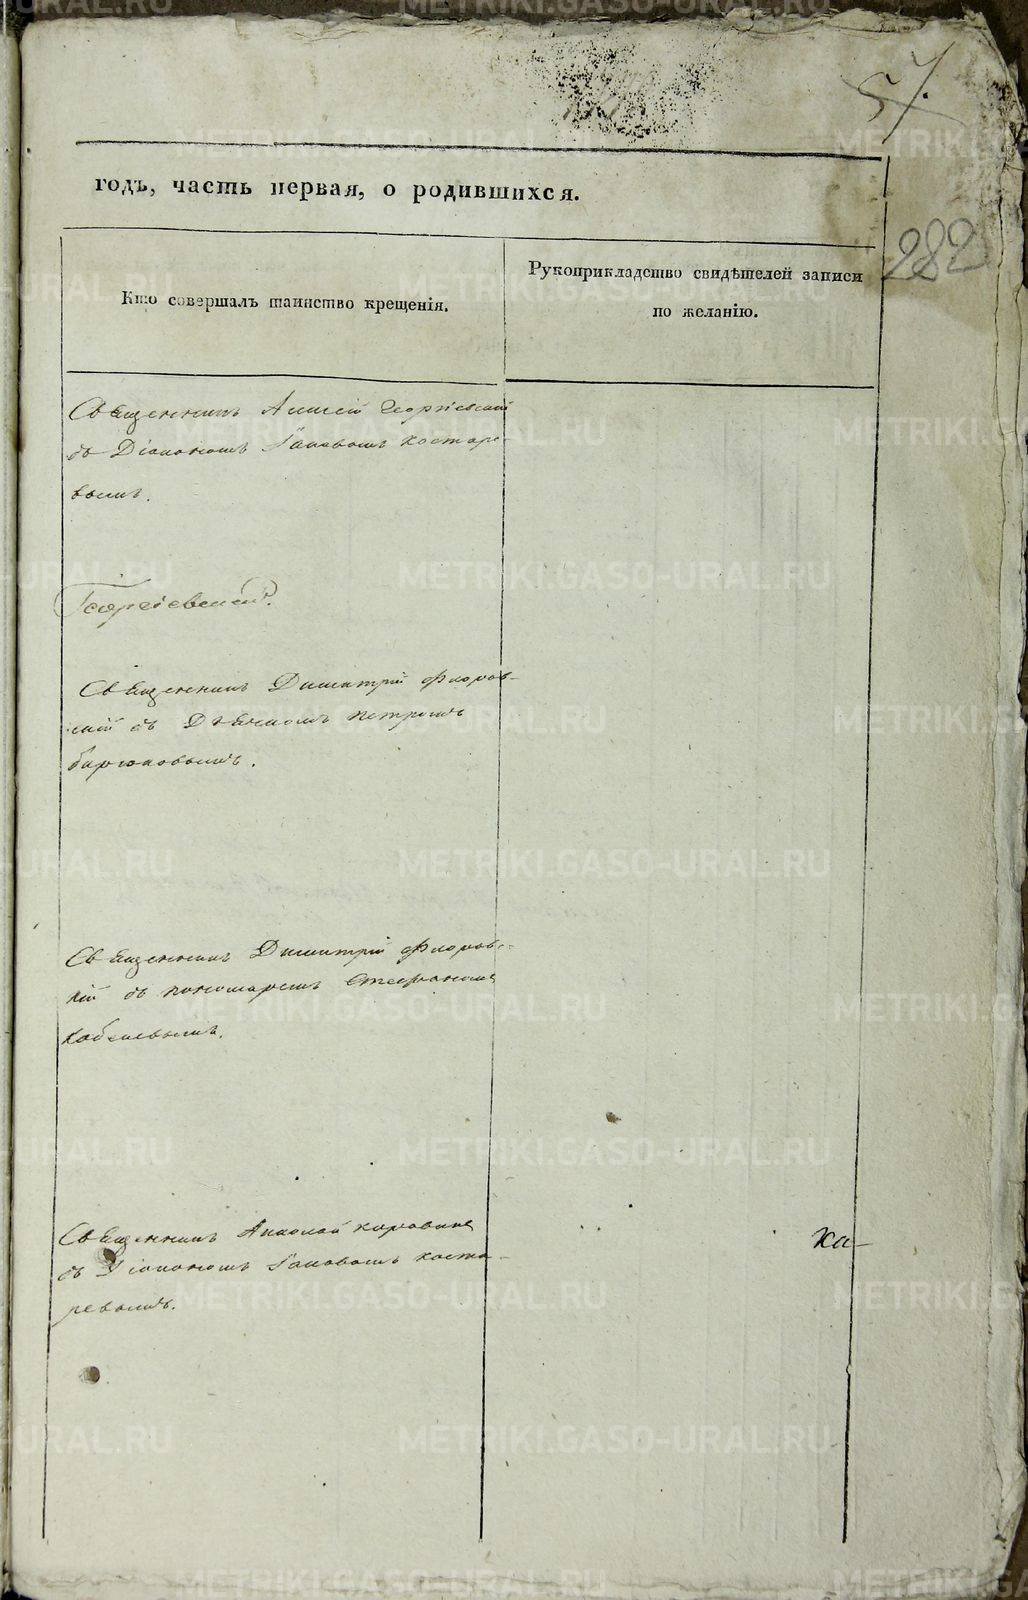 57.
годъ, часть первая, о родившихся.
282
Кто совершалъ таинство крещенія.
Рукоприкладство свидѣтелей записи
по желанію.
Священникъ Алексѣй Георгіевскій
съ Діакономъ Іаковомъ Костаре-
вымъ.
Георгіевскій.
Священникъ Димитрій Флоров-
скій съ Дьячкомъ Петромъ
Священникъ Димитрій Флоровс-
кій съ пономаремъ Стефаномъ
Священникъ Николай Коровинъ
съ Діакономъ Іаковомъ Коста-
ревымъ.
Ка-
METRIKI.GASO-URAL.RU